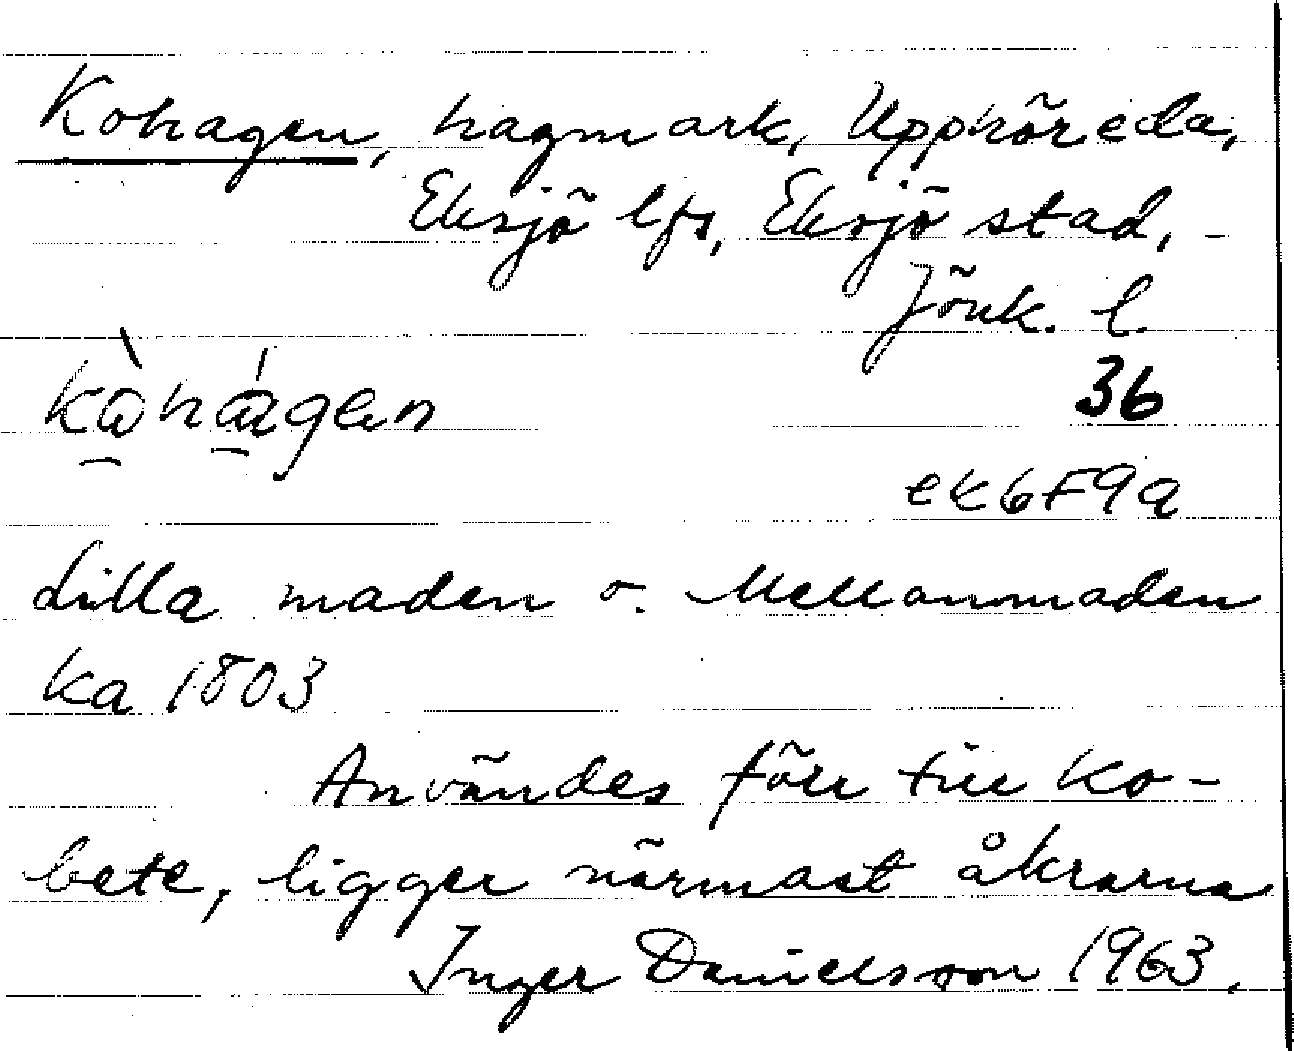 Kohagen, hagmark, Upphöreda,
Eksjö lfs, Eksjö stad,
Jönk. l.
36
ek6F9a
Lilla maden o. Mellanmaden
ka 1803
Användes förr till ko-
bete, ligger närmast åkrarna
Inger Danielsson 1963.